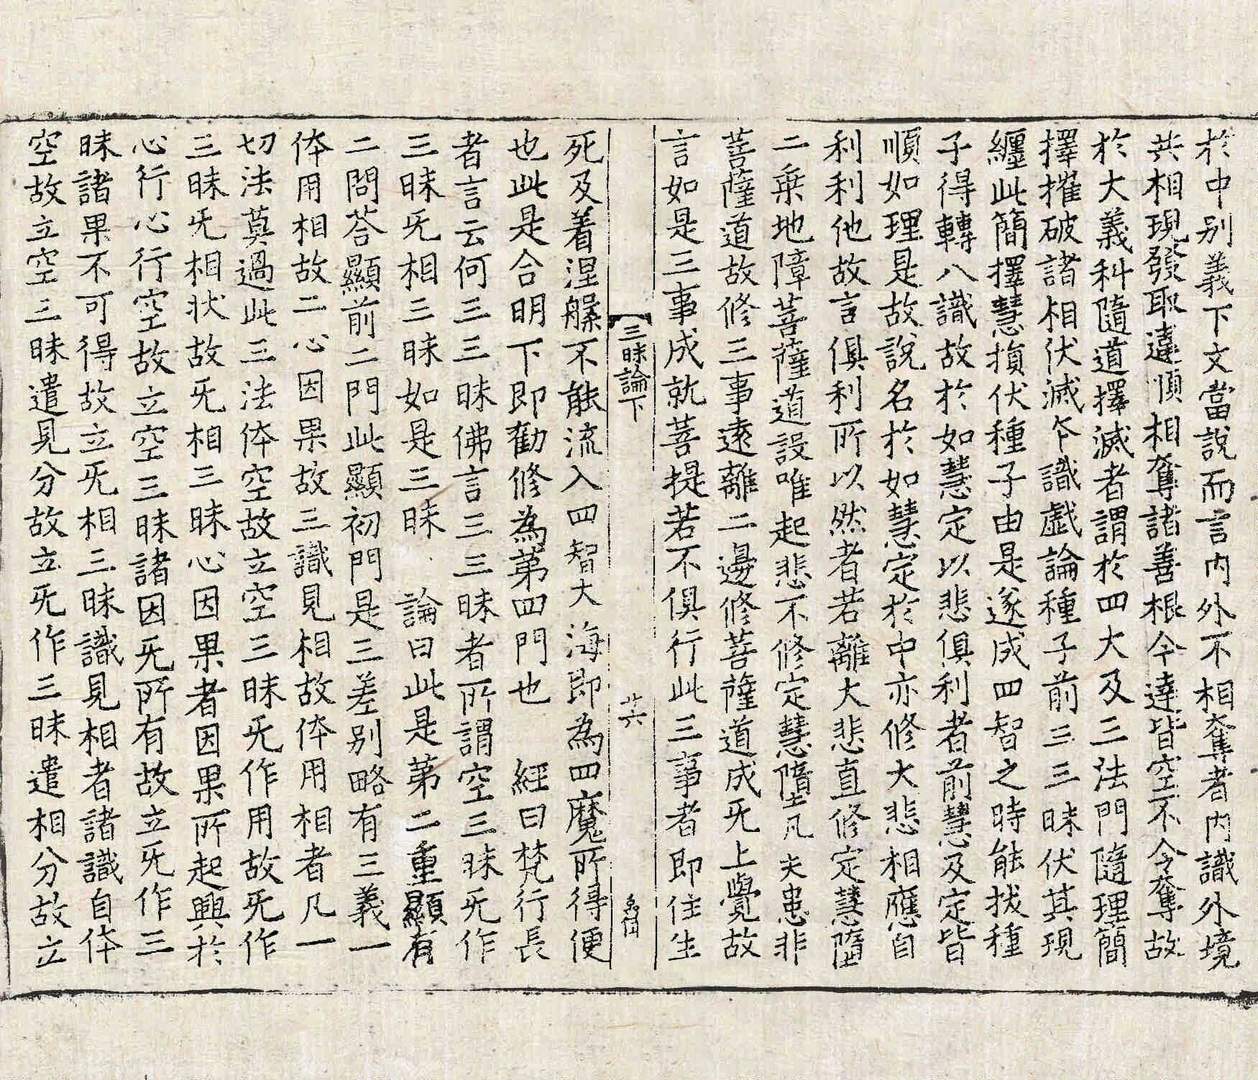 於中别義下文當說而言内外不相奪者内識外境
共相現發取違順相奪諸善根今達皆空不令奪故
於大義科隨道擇滅者謂於四大及三法門隨理簡
擇摧破諸相伏滅本識戯論種子前三三昧伏其現
纏此簡擇慧損伏種子由是遂成四智之時能拔種
子得轉八識故於如慧定以悲俱利者前慧及定皆
順如理是故說名於如慧定於中亦修大悲相應自
利利他故言俱利所以然者若離大悲直修定慧墮
二乗地障菩薩道設唯起悲不修定慧墮凡夫患非
菩薩道故修三事遠離二邊修菩薩道成旡上覺故
言如是三事成就菩提若不俱行此三事者即住生
三昧論下 廿六
死及着涅槃不能流入四智大海即為四魔所得便
也此是合明下即勸修為第四門也 經曰梵行長
者言云何三三昧佛言三三昧者所謂空三昧旡作
三昧旡相三昧如是三昧、論曰此是第二重顯有
二問荅顯前二門此顯初門是三差别略有三義一
体用相故二心因果故三識見相故体用相者凡一
切法莫過此三法体空故立空三昧旡作用故旡作
三昧旡相状故旡相三昧心因果者因果所起興於
心行心行空故立空三昧諸因旡所有故立旡作三
昧諸果不可得故立旡相三昧識見相者諸識自体
空故立空三昧遣見分故立旡作三昧遣相分故立